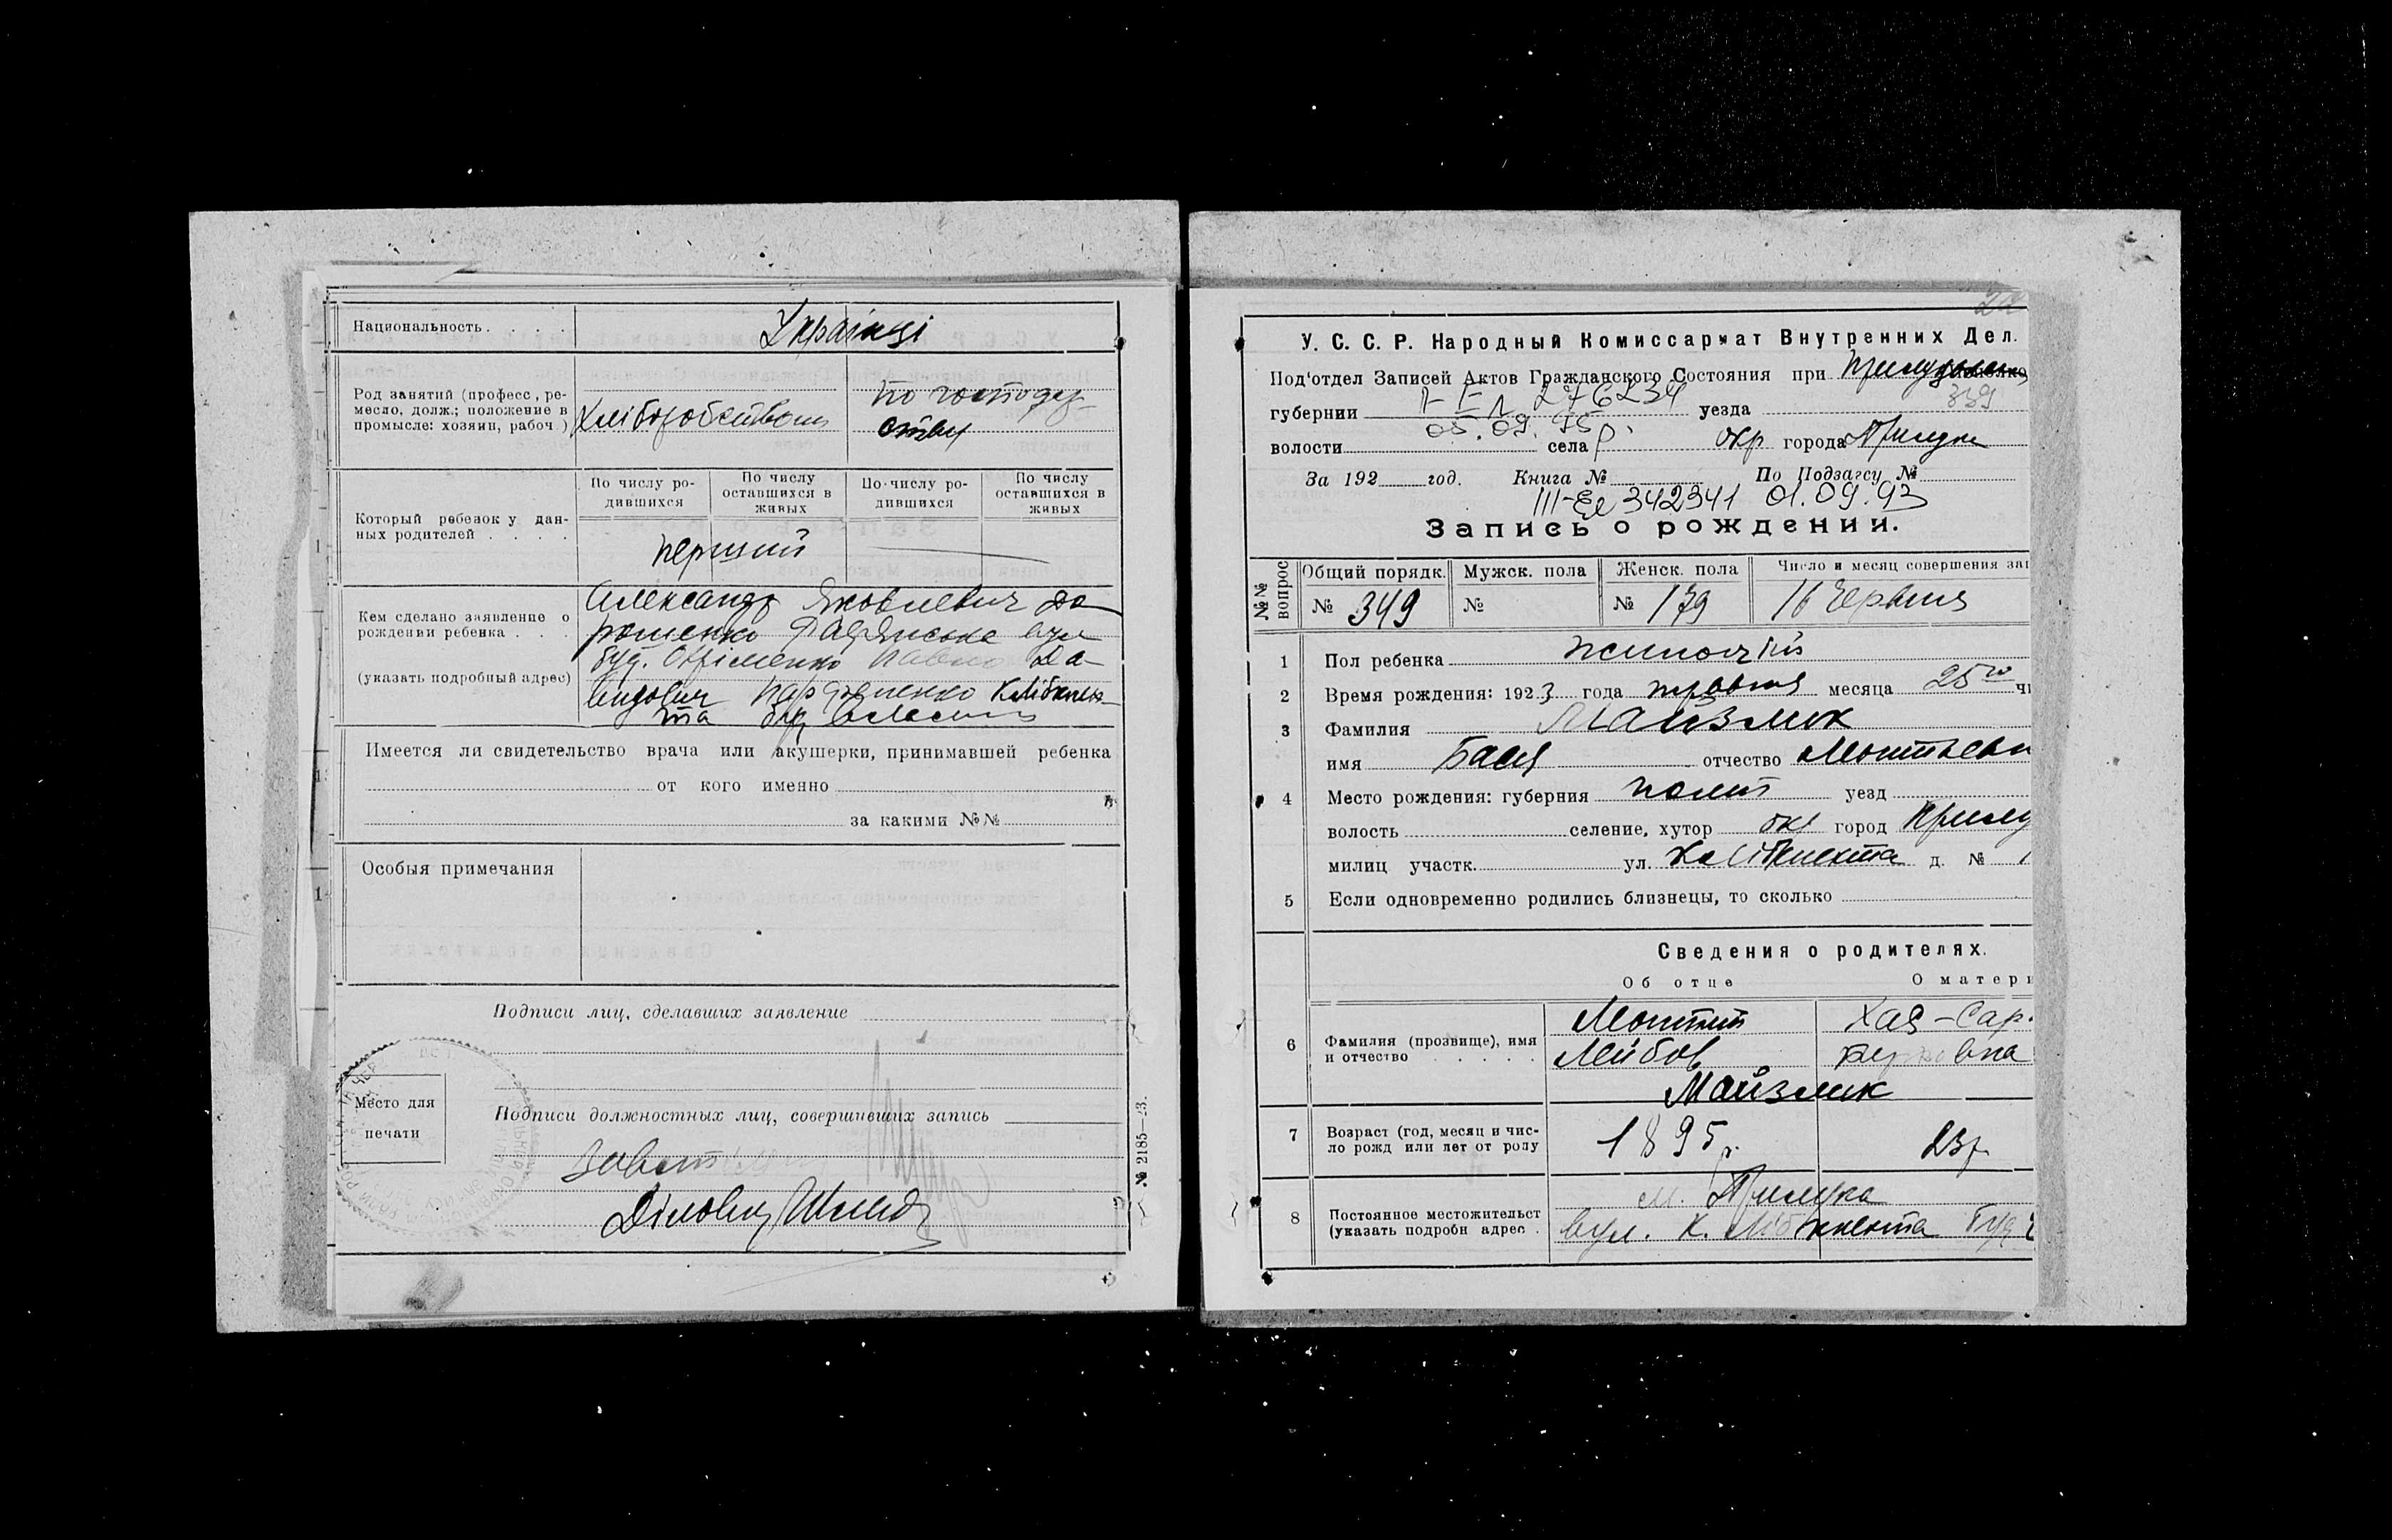 Национальность. . . . . Українці
Род занятий (професс, ре-
месло, долж.; положение в
промысле: хозяин, рабоч.) Хліборобством по господар-
ству
Который ребенок у дан-
ных родителей . . . .
По числу ро-
дившихся
По числу
оставшихся в
живых
По числу ро-
дившихся
По числу
оставшихся в
живых
перший
Кем сделано заявление о
рождении ребенка . . .
(указать подробный адрес)
Александр Яковлевич До-
рошенко вул
буд. Павло Да-
видович К.Лібкнех-
та буд
Имеется ли свидетельство врача или акушерки, принимавшей ребенка
от кого именно
за какими №№
Особыя примечания
Подписи лиц, сделавших заявление
Место для
печати
Подписи должностных лиц, совершивших запись
Діловод
№ 2185—23.
У. С. С. Р. Народный Комиссариат Внутренних Дел.
Под'отдел Записей Актов Гражданского Состояния при
губернии 276234 уезда 339
05.09.75р.
волости села окр города Прилуки
За 192 год. Книга № По Подзагсу №
III-ЕЛ 342341 01.09.93
Запись о рождении.
№№ вопрос
Общий порядк. Мужск. пола Женск. пола Число и месяц совершения зап
№ 349 № № 179 16 Червня
1 Пол ребенка жиночий
2 Время рождения: 1923 года травня месяца 25го чи
3 Фамилия Майзлик
имя Бася отчество
4 Место рождения: губерния Полт уезд
волость селение, хутор окр город Прилу
милиц участк. ул. К.Лібкнехта д. №
5 Если одновременно родились близнецы, то сколько
Сведения о родителях.
Об отце О матери
6 Фамилия (прозвище), имя
и отчество . . . . .
Хая-Сар
Лейбов
Майзлик
7 Возраст (год, месяц и чис-
ло рожд или лет от роду 1895р. 23р.
8 Постоянное местожительст
(указать подробн адрес .
м. Прилука
вул. К. Лібкнехта буд